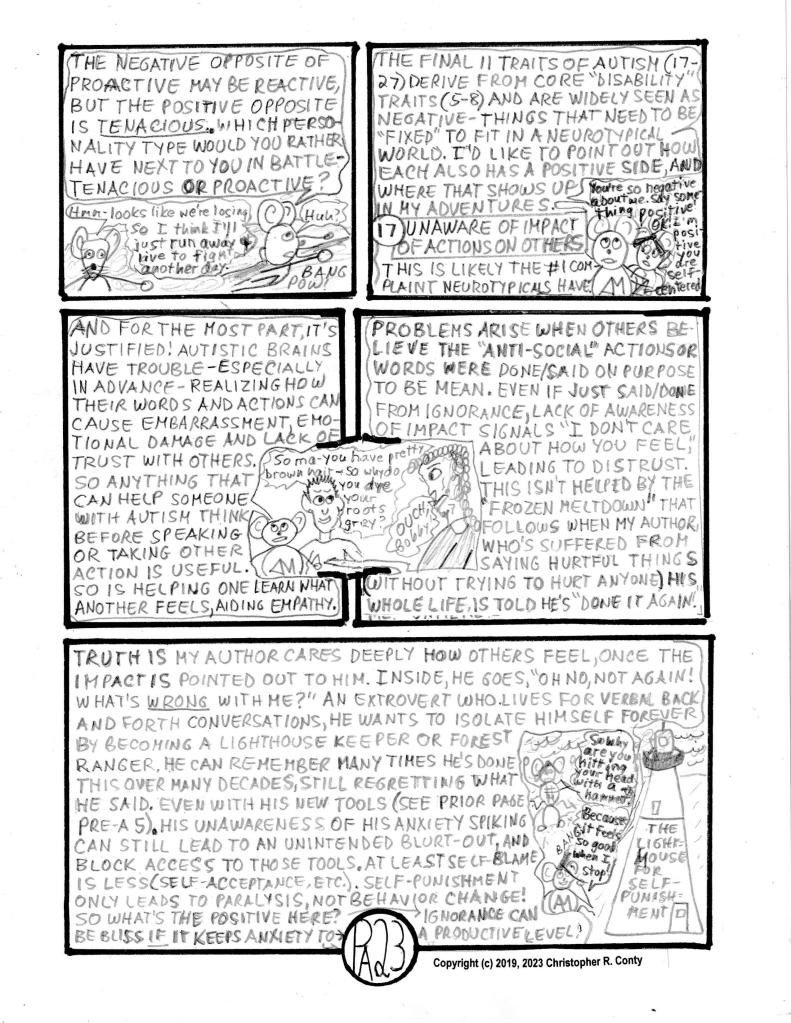 THE NEGATIVE OPPOSITE OF
PROACTIVE MAY BE REACTIVE,
BUT THE POSITIVE OPPOSITE
IS TENACIOUS. WHICH PERSO-
NALITY TYPE WOULD YOU RATHER
HAVE NEXT TO YOU IN BATTLE-
TENACIOUS OR PROACTIVE?
Hmm-looks like we're losing
So I think I'll
just run away &
live to fight
another day.
Huh?
BANG
POW!
THE FINAL 11 TRAITS OF AUTISM (17-
27) DERIVE FROM CORE "DISABILITY"
TRAITS (5-8) AND ARE WIDELY SEEN AS
NEGATIVE-THINGS THAT NEED TO BE
"FIXED" TO FIT IN A NEUROTYPICAL
WORLD. I'D LIKE TO POINT OUT HOW
EACH ALSO HAS A POSITIVE SIDE, AND
WHERE THAT SHOWS UP
IN MY ADVENTURES.
You're so negative
about me. Say some
thing positive
OK. I'm
posi-
tive
you
are
self-
centered
17 UNAWARE OF IMPACT
OF ACTIONS ON OTHERS
THIS IS LIKELY THE #1 COM-
PLAINT NEUROTYPICALS HAVE
AND FOR THE MOST PART, IT'S
JUSTIFIED! AUTISTIC BRAINS
HAVE TROUBLE-ESPECIALLY
IN ADVANCE-REALIZING HOW
THEIR WORDS AND ACTIONS CAN
CAUSE EMBARRASSMENT, EMO-
TIONAL DAMAGE AND LACK OF
TRUST WITH OTHERS.
SO ANYTHING THAT
CAN HELP SOMEONE
WITH AUTISM THINK
BEFORE SPEAKING
OR TAKING OTHER
ACTION IS USEFUL.
SO IS HELPING ONE LEARN WHAT
ANOTHER FEELS, AIDING EMPATHY.
So ma-you have pretty
brown hair-so why do
you dye
your
roots
grey?
OUCH,
Bobby!
PROBLEMS ARISE WHEN OTHERS BE-
LIEVE THE "ANTI-SOCIAL" ACTIONS OR
WORDS WERE DONE/SAID ON PURPOSE
TO BE MEAN. EVEN IF JUST SAID/DONE
FROM IGNORANCE, LACK OF AWARENESS
OF IMPACT SIGNALS "I DON'T CARE
ABOUT HOW YOU FEEL,"
LEADING TO DISTRUST.
THIS ISN'T HELPED BY THE
"FROZEN MELTDOWN" THAT
FOLLOWS WHEN MY AUTHOR,
WHO'S SUFFERED FROM
SAYING HURTFUL THINGS
(WITHOUT TRYING TO HURT ANYONE) HIS
WHOLE LIFE, IS TOLD HE'S "DONE IT AGAIN!"
TRUTH IS MY AUTHOR CARES DEEPLY HOW OTHERS FEEL, ONCE THE
IMPACT IS POINTED OUT TO HIM. INSIDE, HE GOES, "OH NO, NOT AGAIN!
WHAT'S WRONG WITH ME?" AN EXTROVERT WHO LIVES FOR VERBAL BACK
AND FORTH CONVERSATIONS, HE WANTS TO ISOLATE HIMSELF FOREVER
BY BECOMING A LIGHTHOUSE KEEPER OR FOREST
RANGER, HE CAN REMEMBER MANY TIMES HE'S DONE
THIS OVER MANY DECADES, STILL REGRETTING WHAT
HE SAID. EVEN WITH HIS NEW TOOLS (SEE PRIOR PAGE
PRE-A 5), HIS UNAWARENESS OF HIS ANXIETY SPIKING
CAN STILL LEAD TO AN UNINTENDED BLURT-OUT, AND
BLOCK ACCESS TO THOSE TOOLS. AT LEAST SELF-BLAME
IS LESS (SELF-ACCEPTANCE, ETC.). SELF-PUNISHMENT
ONLY LEADS TO PARALYSIS, NOT BEHAVIOR CHANGE!
SO WHAT'S THE POSITIVE HERE? IGNORANCE CAN
BE BLISS IF IT KEEPS ANXIETY TO A PRODUCTIVE LEVEL!
So why
are you
hitting
your head
with a
hammer?
Because
it feels
so good
when I
stop!
BANG
THE
LIGHT-
HOUSE
FOR
SELF-
PUNISH-
MENT
PA23
Copyright (c) 2019, 2023 Christopher R. Conty